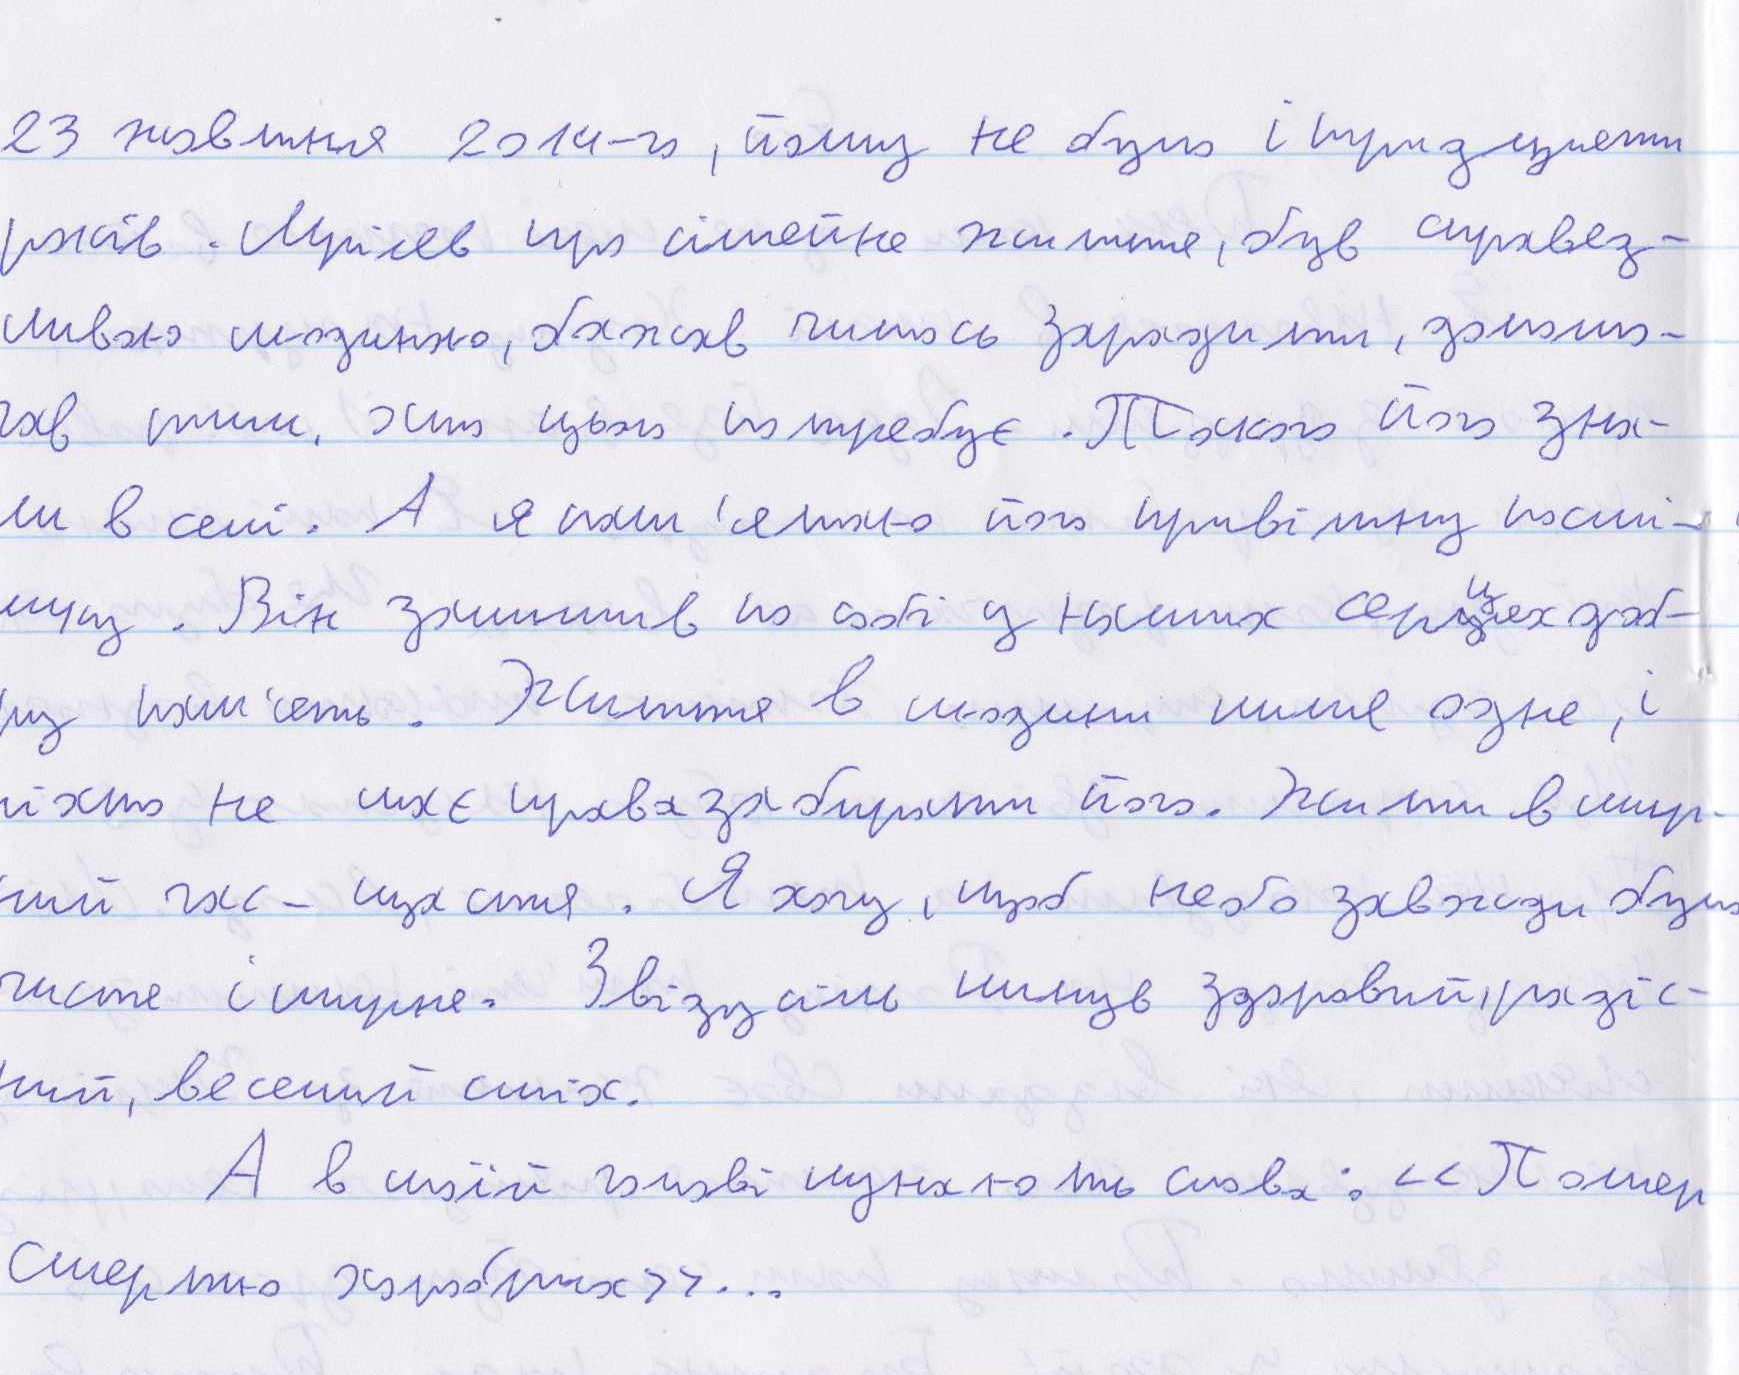 23 жовтня 2014-го, йому не було і тридцяти
років. Мріяв про сімейне життя, був справед-
ливою людиною, бажав чимось зарадити, допома-
гав тим, хто цього потребує. Такого його зна-
ли в селі. А я пам'ятаю його привітну посмі-
шку. Він залишив по собі у наших серцях доб-
ру пам'ять. Життя в людини лише одне, і
ніхто не має права забирати його. Жити в мир-
ний час - щастя. Я хочу, щоб небо завжди було
чисте і мирне. Звідусіль линув здоровий, радіс-
ний, веселий сміх.
А в моїй голові лунають слова: <<Помер
Смертю хоробрих>>...